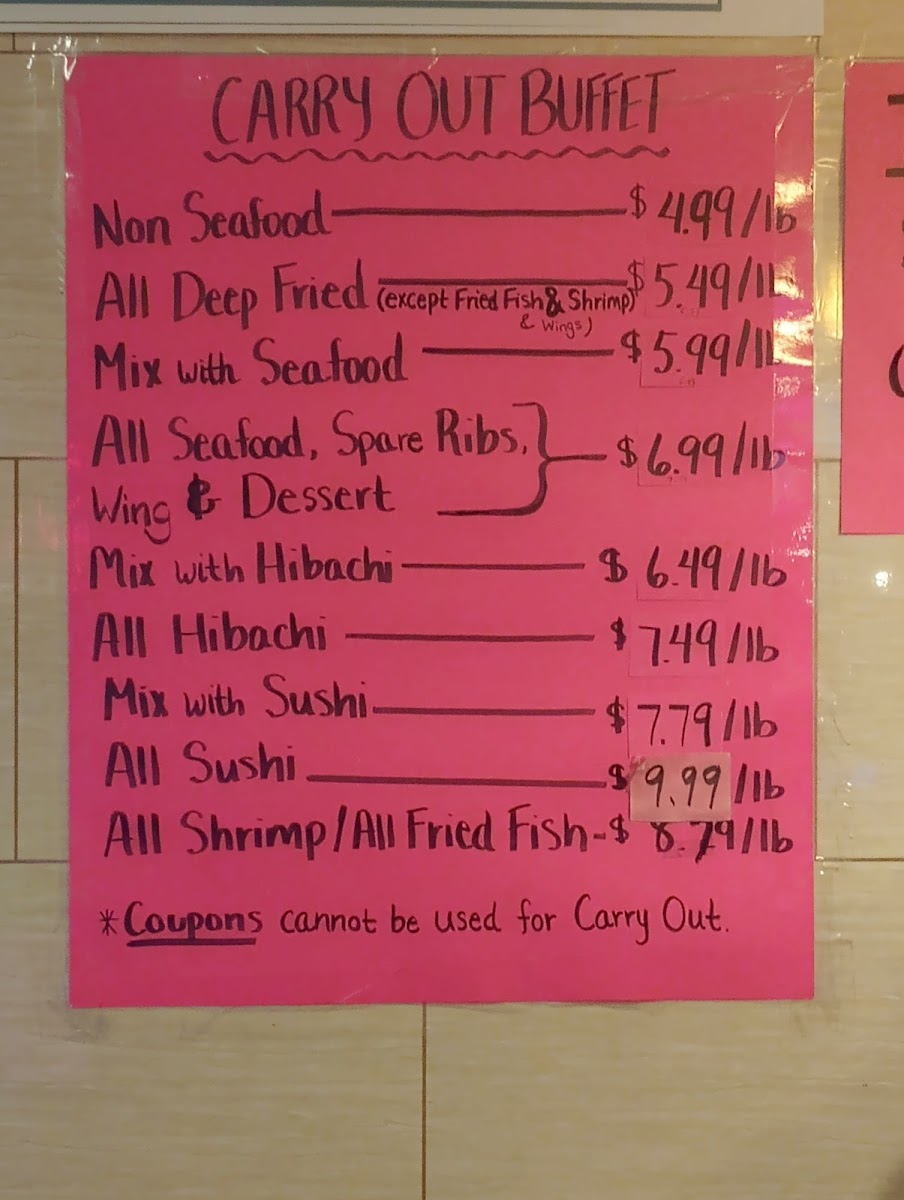 CARRY OUT BUFFET
Non Seafood $ 4.99/lb
All Deep Fried (except Fried Fish & Shrimp) $ 5.49/lb
& Wings)
Mix with Seafood $ 5.99/lb
All Seafood, Spare Ribs,
Wing & Dessert $ 6.99/lb
Mix with Hibachi $ 6.49/lb
All Hibachi $ 7.49/lb
Mix with Sushi $ 7.79/lb
All Sushi $ 9.99/lb
All Shrimp/All Fried Fish-$ 8.79/lb
*Coupons cannot be used for Carry Out.